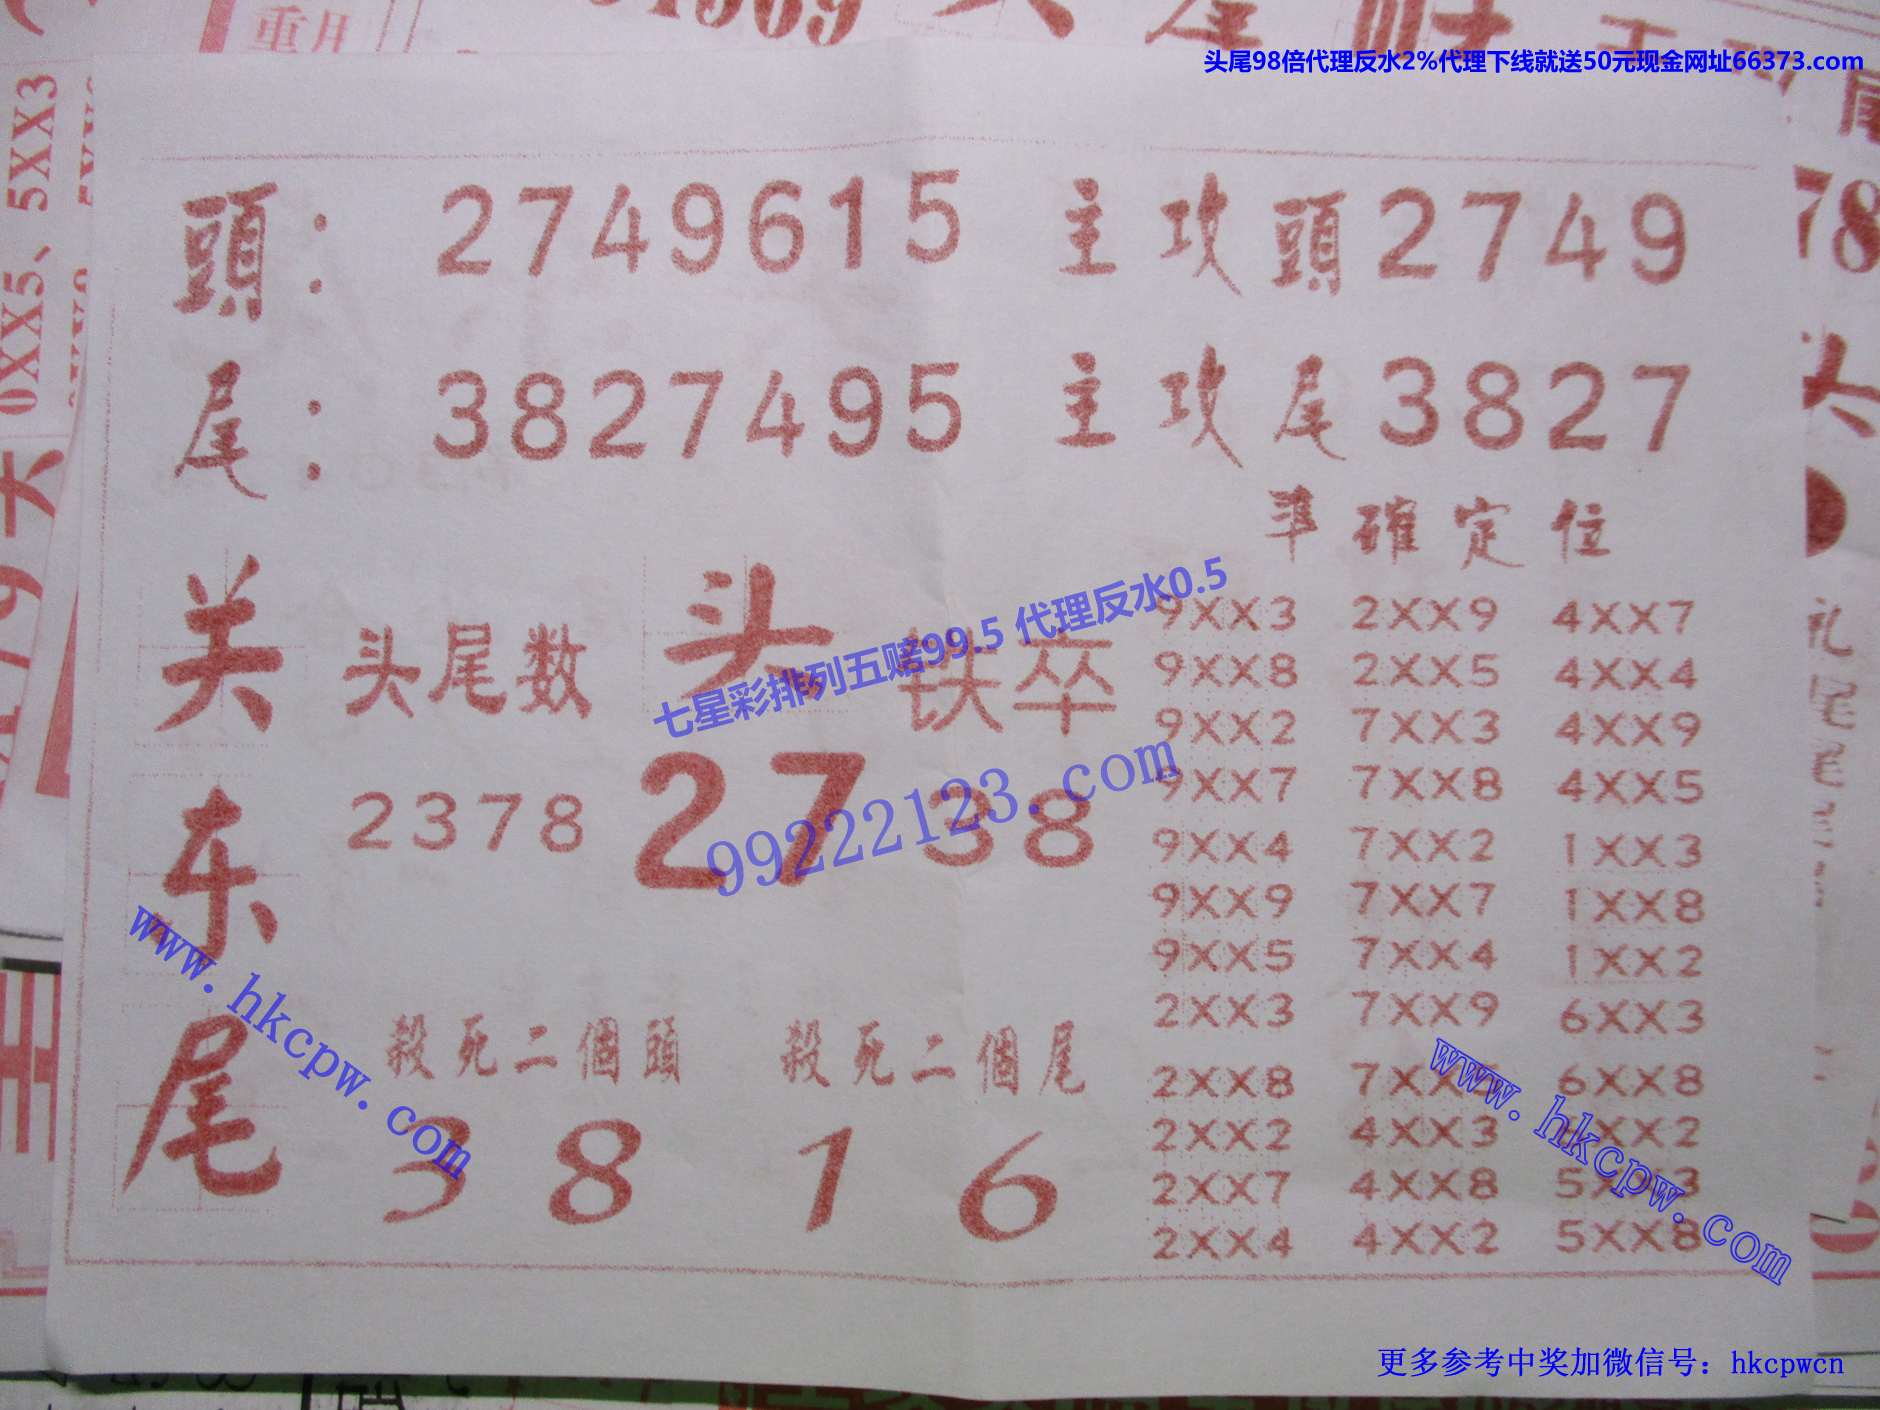 头尾98倍代理反水2%代理下线就送50元现金网址66373.com
重用
0XX5、5XX3
頭：2749615 主攻頭2749
尾：3827495 主攻尾3827
準確定位
关东尾
头尾数
2378
头
27
铁卒
38
七星彩排列五赔99.5 代理反水0.5
99222123.com
9XX3 2XX9 4XX7
9XX8 2XX5 4XX4
9XX2 7XX3 4XX9
9XX7 7XX8 4XX5
9XX4 7XX2 1XX3
9XX9 7XX7 1XX8
9XX5 7XX4 1XX2
2XX3 7XX9 6XX3
2XX8 6XX8
2XX2 4XX3
2XX7 4XX8 5XX3
2XX4 4XX2 5XX8
殺死二個頭 殺死二個尾
3 8 1 6
www.hkcpw.com
www.hkcpw.com
更多参考中奖加微信号：hkcpwcn